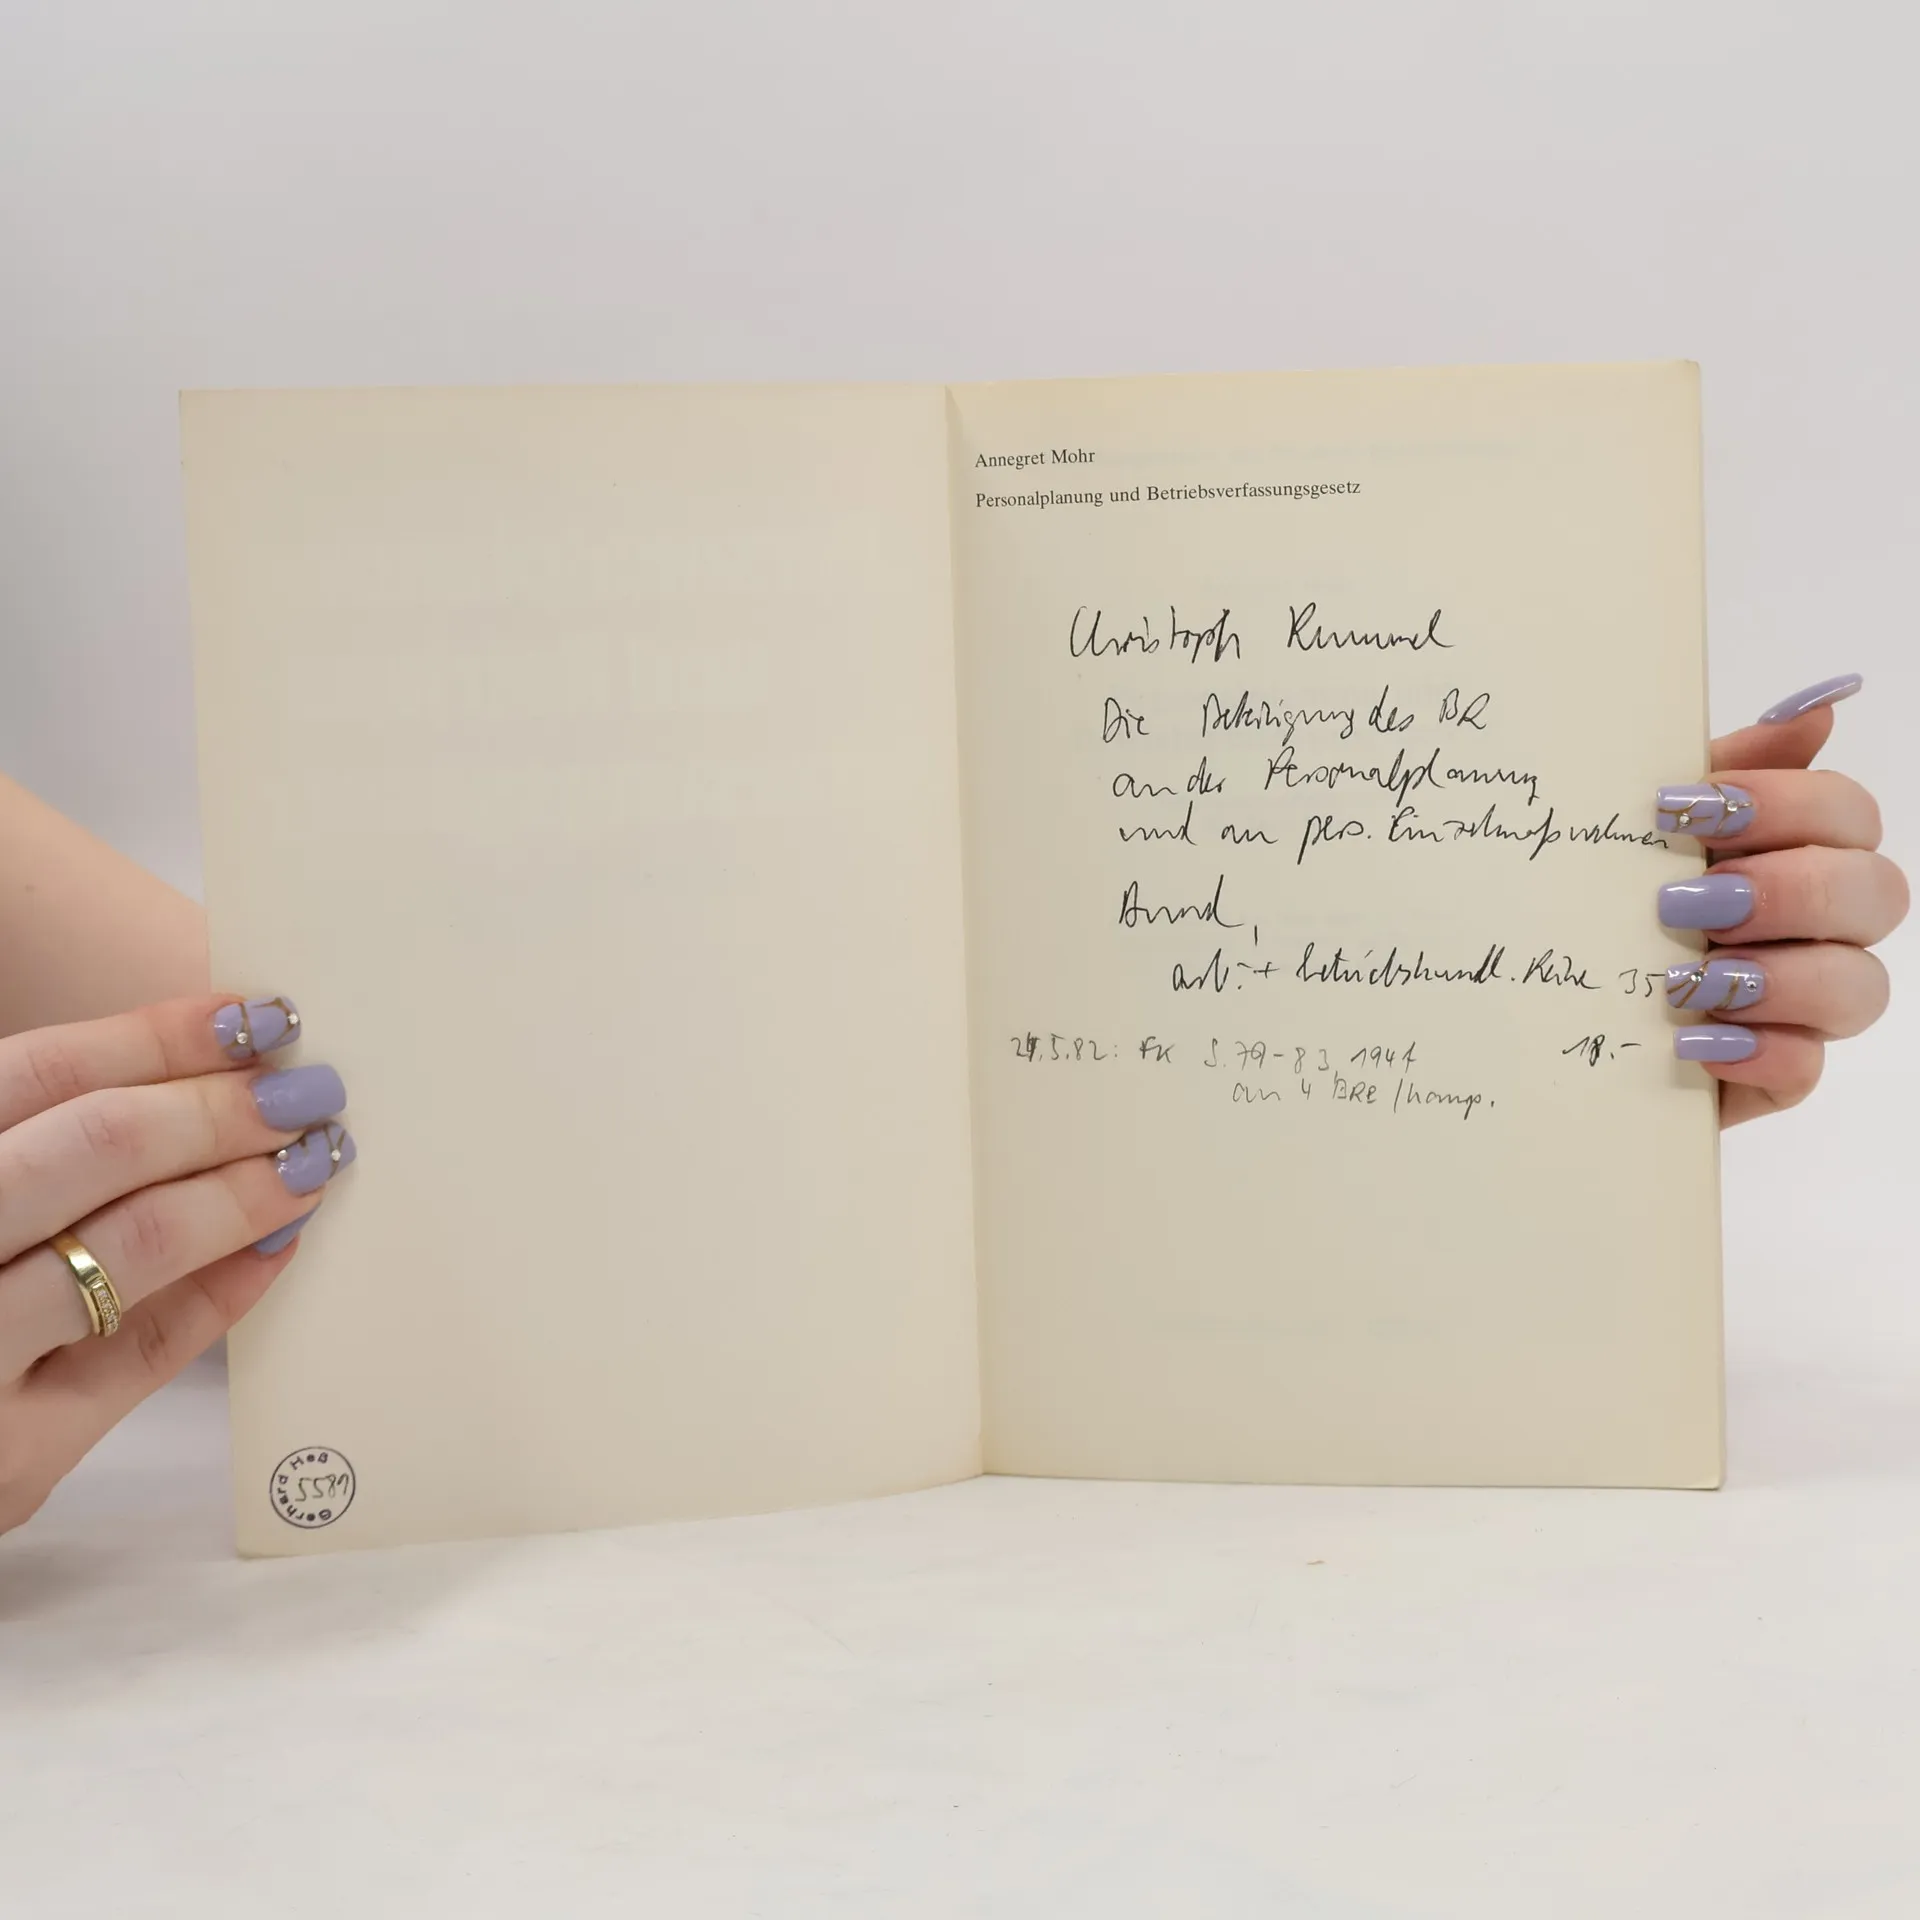 Annegret Mohr
Personalplanung und Betriebsverfassungsgesetz
Christoph Rummel
Die Beteiligung des BR
an der Personalplanung
und an pers. Einzelmaßnahmen
Bund,
arb.- + betriebskundl. Reihe 35
.5.82: FK S. 79-83, 18.-
an 4 BRe /komp.
Gerhard Heß
5581